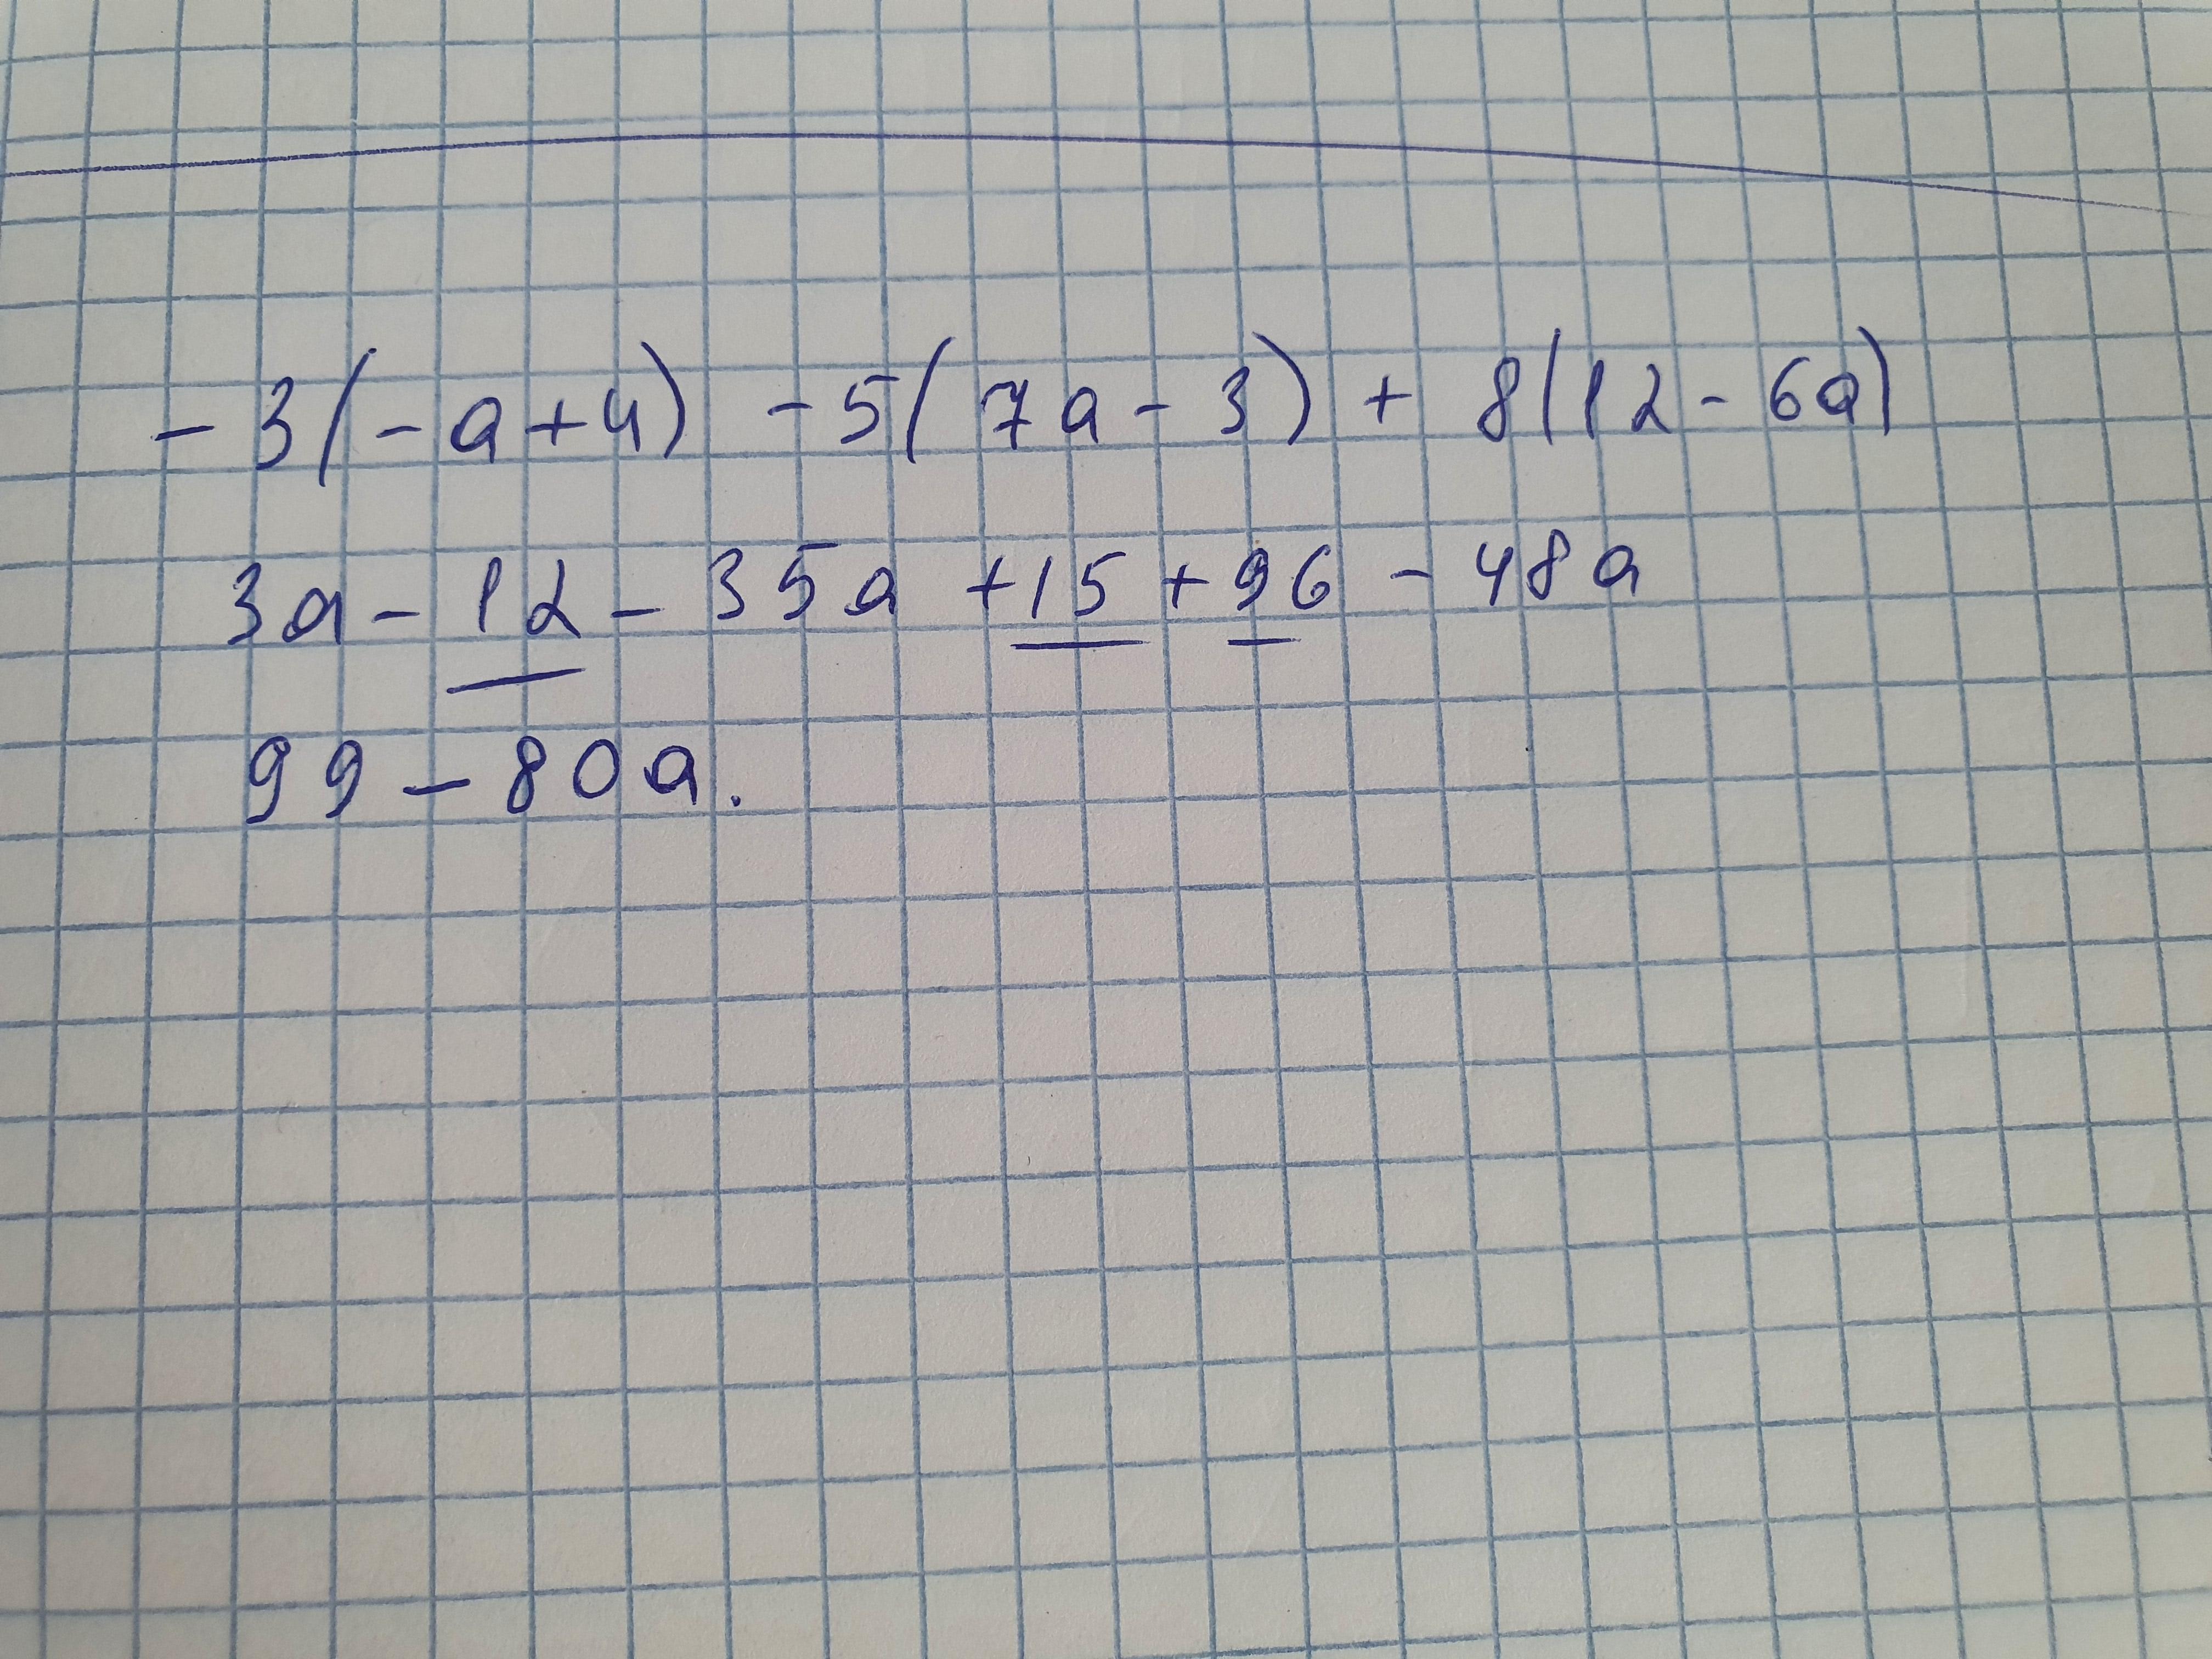 - 3(-a+4) - 5(7a - 3) + 8(12 - 6a)
3a - 12 - 35a + 15 + 96 - 48a
99 - 80a.